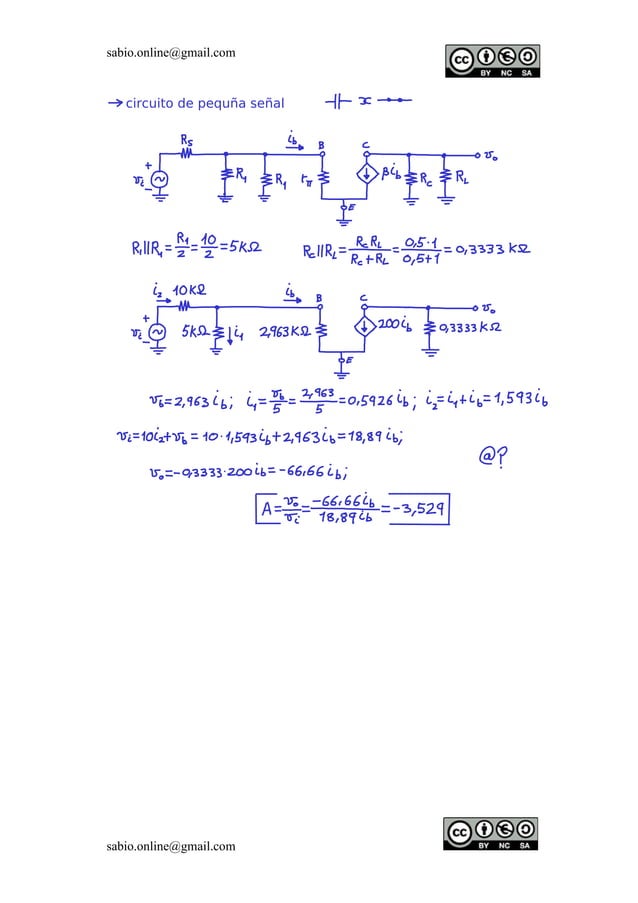 sabio.online@gmail.com
cc BY NC SA
→ circuito de pequña señal
Rs ib B C vo
+ vi − R1 R1 rπ βib Rc RL
E
R1||R1=R1/2=10/2=5KΩ Rc||RL=RcRL/Rc+RL=0,5·1/0,5+1=0,3333KΩ
i2 10KΩ ib B C vo
+ vi − 5KΩ i1 2,963KΩ 200ib 0,3333KΩ
E
vb=2,963ib; i1=vb/5=2,963/5=0,5926ib; i2=i1+ib=1,593ib
vi=10i2+vb=10·1,593ib+2,963ib=18,89ib;
@?
vo=-0,3333·200ib=-66,66ib;
A=vo/vi=-66,66ib/18,89ib=-3,529
sabio.online@gmail.com
cc BY NC SA